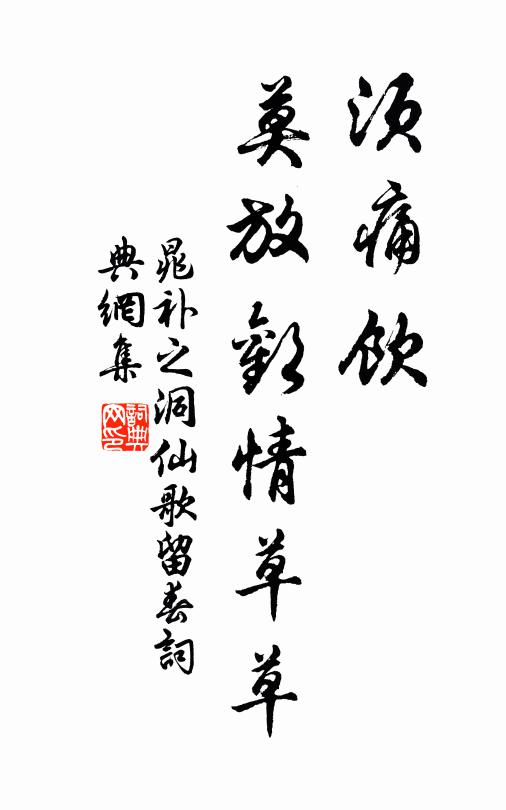 須痛飲
莫放歡情草草
晁补之洞仙歌留春詞
典網集
詞典网印